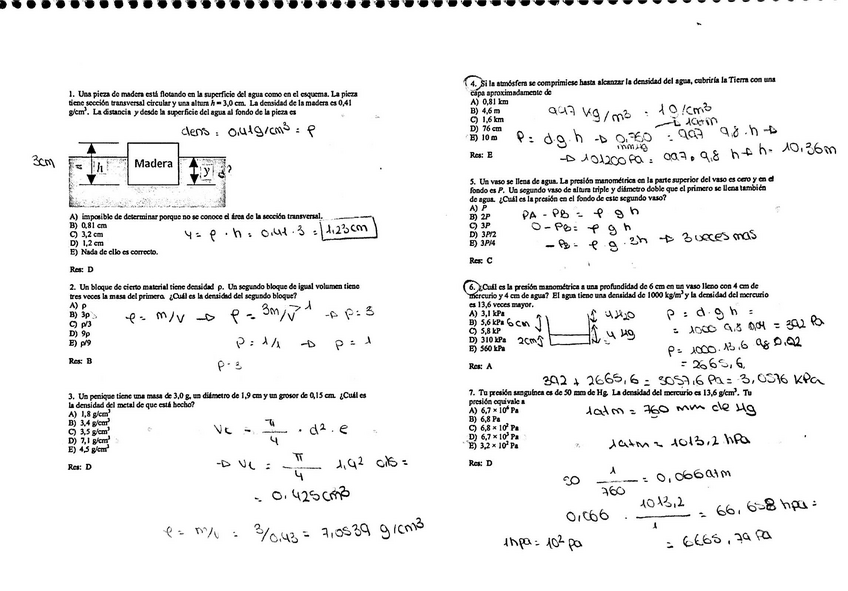 1. Una pieza de madera está flotando en la superficie del agua como en el esquema. La pieza
tiene sección transversal circular y una altura h = 3,0 cm. La densidad de la madera es 0,41
g/cm³. La distancia y desde la superficie del agua al fondo de la pieza es
dens = 0,41g/cm³ = ρ
3cm = h
Madera
y ?
A) imposible de determinar porque no se conoce el área de la sección transversal.
B) 0,81 cm
C) 3,2 cm
D) 1,2 cm
E) Nada de ello es correcto.
y = ρ · h = 0,41 · 3 = 1,23cm
Res: D
2. Un bloque de cierto material tiene densidad ρ. Un segundo bloque de igual volumen tiene
tres veces la masa del primero. ¿Cuál es la densidad del segundo bloque?
A) ρ
B) 3ρ
C) ρ/3
D) 9ρ
E) ρ/9
ρ = m/v → ρ = 3m/v 1 → ρ = 3
ρ = 1/1 → ρ = 1
ρ · 3
Res: B
3. Un penique tiene una masa de 3,0 g, un diámetro de 1,9 cm y un grosor de 0,15 cm. ¿Cuál es
la densidad del metal de que está hecho?
A) 1,8 g/cm³
B) 3,4 g/cm³
C) 3,5 g/cm³
D) 7,1 g/cm³
E) 4,5 g/cm³
Vc = π/4 · d² · e
→ Vc = π/4 1,9² 0,15 =
= 0,425cm³
Res: D
ρ = m/v = 3/0,43 = 7,0539 g/cm³
4. Si la atmósfera se comprimiese hasta alcanzar la densidad del agua, cubriría la Tierra con una
capa aproximadamente de
A) 0,81 km
B) 4,6 m
C) 1,6 km
D) 76 cm
E) 10 m
997 kg/m³ = 1 /cm³
1atm
P = d g h → 0,760 = 997 9,8 h →
mmHg
→ 101200 Pa = 997 · 9,8 h → h = 10,36m
Res: E
5. Un vaso se llena de agua. La presión manométrica en la parte superior del vaso es cero y en el
fondo es P. Un segundo vaso de altura triple y diámetro doble que el primero se llena también
de agua. ¿Cuál es la presión en el fondo de este segundo vaso?
A) P
B) 2P
C) 3P
D) 3P/2
E) 3P/4
PA - PB = ρ g h
0 - PB = ρ g h
- PB = ρ · g · 3h → 3 veces mas
Res: C
6. ¿Cuál es la presión manométrica a una profundidad de 6 cm en un vaso lleno con 4 cm de
mercurio y 4 cm de agua? El agua tiene una densidad de 1000 kg/m³ y la densidad del mercurio
es 13,6 veces mayor.
A) 3,1 kPa
B) 5,6 kPa
C) 5,8 kP
D) 310 kPa
E) 560 kPa
6cm
2cm
4 H2O
4 Hg
P = d · g · h =
= 1000 9,8 0,04 = 392 Pa
P = 1000 · 13,6 9,8 0,02
= 2665,6
Res: A
392 + 2665,6 = 3057,6 Pa = 3,0576 KPa
7. Tu presión sanguínea es de 50 mm de Hg. La densidad del mercurio es 13,6 g/cm³. Tu
presión equivale a
A) 6,7 × 10⁴ Pa
B) 6,8 Pa
C) 6,8 × 10² Pa
D) 6,7 × 10³ Pa
E) 3,2 × 10² Pa
1atm = 760 mm de Hg
1atm = 1013,2 hPa
Res: D
50 1/760 = 0,066atm
0,066 · 1013,2/1 = 66,658 hpa =
1hpa = 10² pa
= 6665,79 Pa